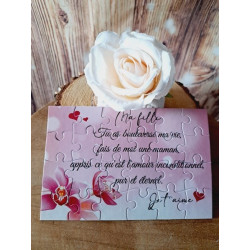 Ma fille
Tu as bouleversé ma vie,
fais de moi une maman,
appris ce qu'est l'amour inconditionnel,
pur et éternel.
Je t'aime